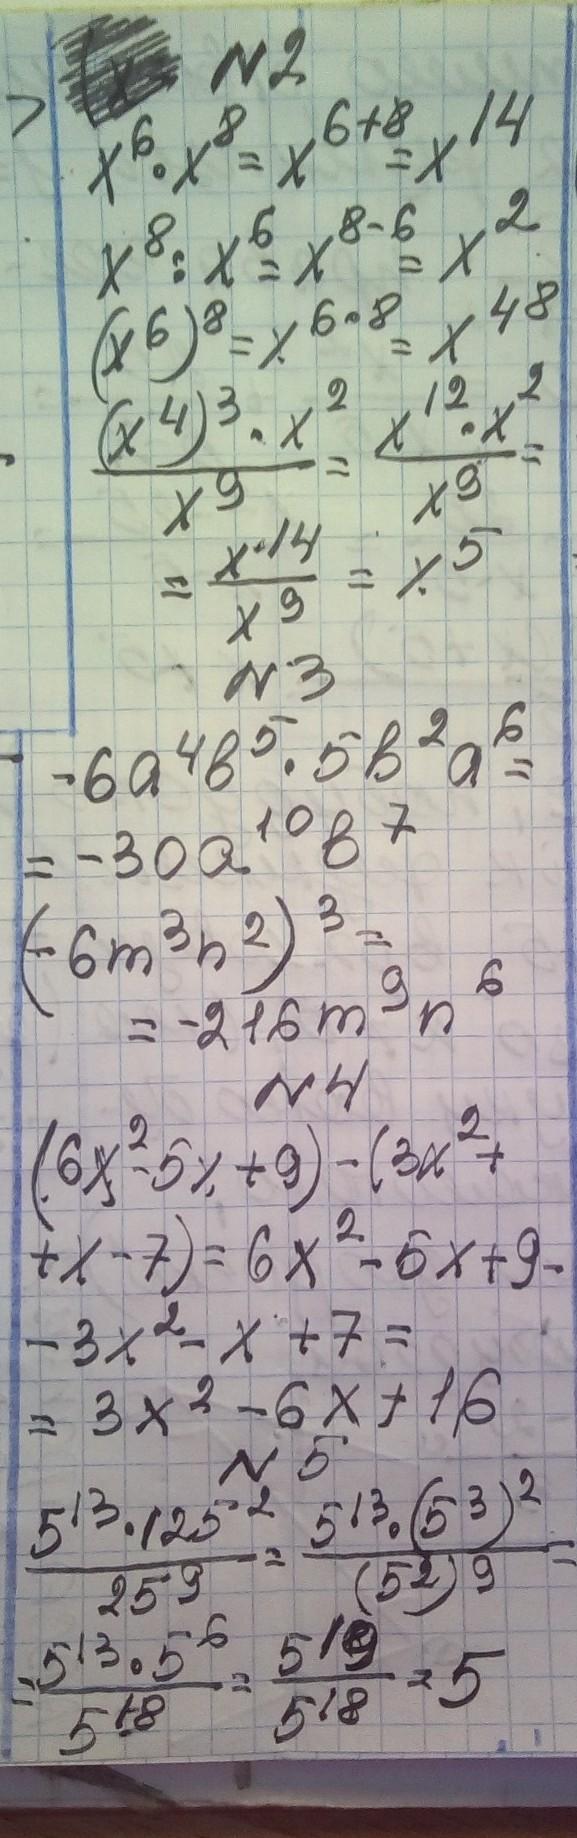 N2
x⁶·x⁸=x⁶⁺⁸=x¹⁴
x⁸:x⁶=x⁸⁻⁶=x²
(x⁶)⁸=x⁶·⁸=x⁴⁸
(x⁴)³·x²/x⁹=x¹²·x²/x⁹=
=x¹⁴/x⁹=x⁵
N3
-6a⁴b⁵·5b²a⁶=
=-30a¹⁰b⁷
(-6m³n²)³=
=-216m⁹n⁶
N4
(6x²-5x+9)-(3x²+
+x-7)=6x²-5x+9-
-3x²-x+7=
=3x²-6x+16
N5
5¹³·125²/25⁹=5¹³·(5³)²/(5²)⁹=
=5¹³·5⁶/5¹⁸=5¹⁹/5¹⁸=5